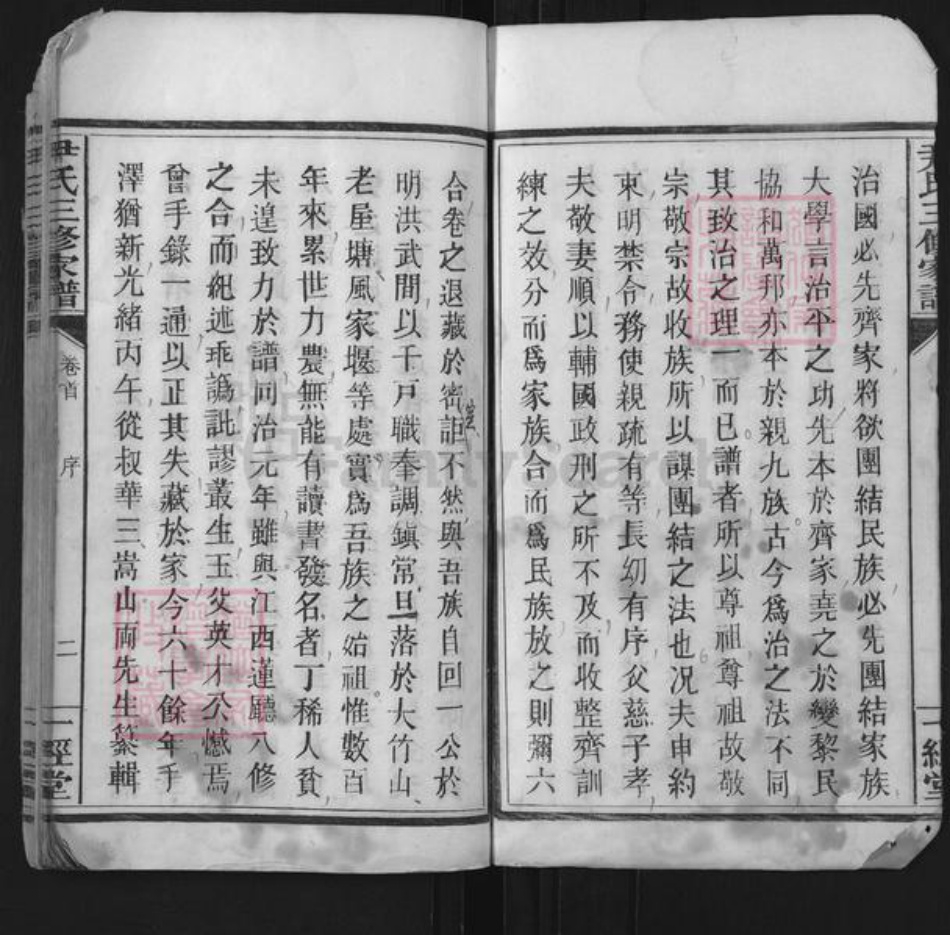 治國必先齊家將欲團結民族必先團結家族
大學言治平之功先本於齊家堯之於變黎民
協和萬邦亦本於親九族古今爲治之法不同
其致治之理一而已譜者所以尊祖尊祖故敬
宗敬宗故收族所以謀團結之法也况夫申約
束明禁令務使親疏有等長幼有序父慈子孝
夫敬妻順以輔國政刑之所不及而收整齊訓
練之效分而爲家族合而爲民族放之則彌六
合卷之退藏於密詎不然與吾族自回一公於
明洪武間以千戸職奉調鎭常旦落於大竹山
老屋塘風家堰等處實爲吾族之始祖惟數百
年來累世力農無能有讀書發名者丁稀人貧
未遑致力於譜同治元年雖與江西蓮廳八修
之合而紀述乖譌訛謬叢生玉父英才公憾焉
曾手錄一通以正其失藏於家今六十餘年手
澤猶新光緒丙午從叔華三嵩山兩先生纂輯
尹氏三修家譜
卷首
序
二
一經堂
FamilySearch